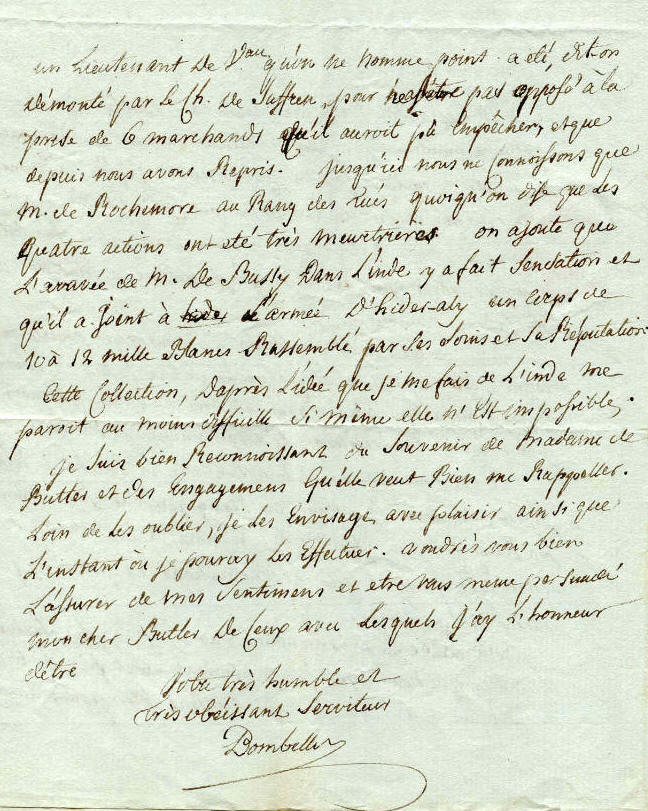 un Lieutenant De Vau qu'on ne nomme point a eté, dit-on
démonté par Le Ch. De Suffren, pour pas opposé à la
prise de 6 marchands qu'il auroit pû empêcher, et que
depuis nous avons Repris. Jusqu'ici nous ne Connoissons que
M. de Rochemore au Rang des tués quoiqu'on dise que Les
quatre actions ont eté très meurtrieres on ajoute que
L'arrivée de M. De Bussy Dans L'inde y a fait Sensation et
qu'il a Joint à L'armée D'hider-aly un Corps de
10 à 12 mille Blancs Rassemblé par Ses Soins et Sa Reputation.
Cette Collection, D'après L'idée que je me fais de L'inde me
paroit au moins difficille Si même elle n'est impossible.
Je Suis bien Reconnoissant du Souvenir de Madame de
Butler et des Engagemens Qu'elle veut Bien me Rappeller.
Loin de Les oublier, je Les Envisage avec plaisir ainsi que
L'instant où je pouray Les Effectuer. voudrés vous bien
L'assurer de mes Sentimens et etre vous meme persuadé
mon cher Butler De Ceux avec Lesquels J'ay L'honneur
d'être
Votre très humble et
très obéissant Serviteur
Bombelles